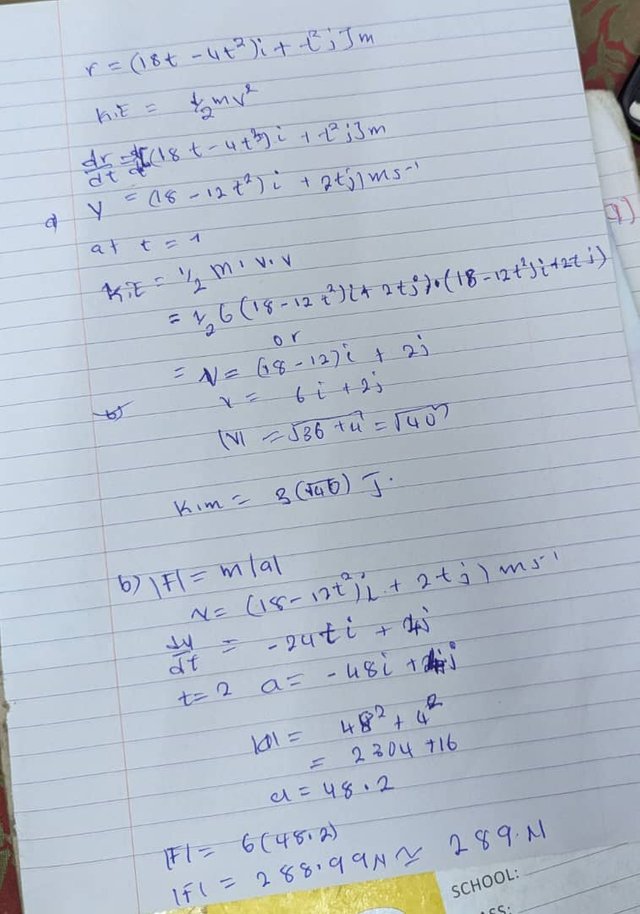 r = (18t - 4t²)i + t²j]m
K.E = ½mv²
dr/dt = d/dt(18t - 4t³)i + t²j]m
a) V = (18 - 12t²)i + 2tj)ms⁻¹
at t = 1
K.E = ½ m.v.v
= ½6(18-12t²)i+2tj).(18-12t²)i+2tj)
or
= V = (18-12)i + 2j
V = 6i + 2j
|V| = √36+4 = √40
K.m = 3(√40) J.
b) |F| = m|a|
V = (18-12t²)i + 2tj)ms⁻¹
dv/dt = -24ti + j
t=2 a = -48i + j
|a| = 48² + 4²
= 2304 + 16
a = 48.2
|F| = 6(48.2)
|F| = 288.99N ≈ 289.N
SCHOOL: